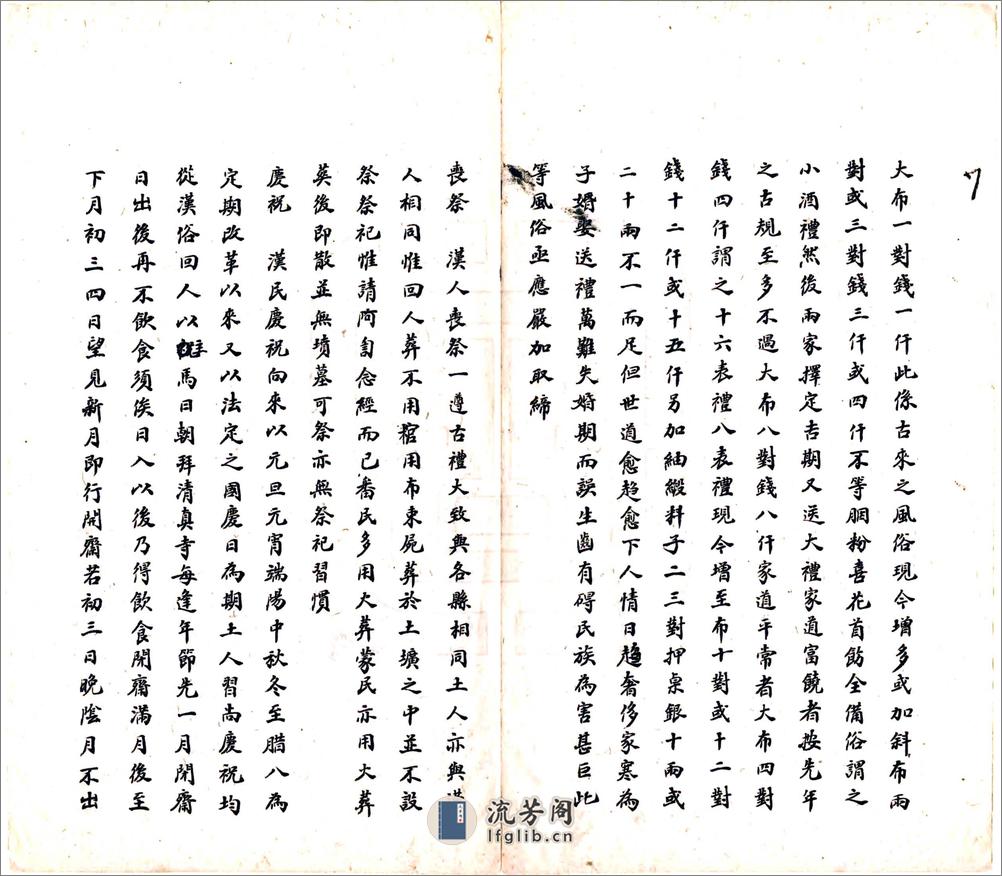 大布一對錢一仟此係古來之風俗現今增多或加斜布兩
對或三對錢三仟或四仟不等胭粉喜花首飭全備俗謂之
小酒禮然後兩家擇定吉期又送大禮家道富饒者按先年
之古規至多不過大布八對錢八仟家道平常者大布四對
錢四仟謂之十六表禮八表禮現今增至布十對或十二對
錢十二仟或十五仟另加紬緞料子二三對押桌銀十兩或
二十兩不一而足但世道愈趨愈下人情日趨奢侈家寒為
子婚娶送禮萬難失婚期而誤生齒有碍民族為害甚巨此
等風俗亟應嚴加取締
喪祭 漢人喪祭一遵古禮大致與各縣相同土人亦與漢
人相同惟回人葬不用棺用布束屍葬於土壙之中並不設
祭祭祀惟請阿訇念經而已番民多用火葬蒙民亦用火葬
葬後即散並無墳墓可祭亦無祭祀習慣
慶祝 漢民慶祝向來以元旦元宵端陽中秋冬至腊八為
定期改革以來又以法定之國慶日為期土人習尚慶祝均
從漢俗回人以主馬日朝拜清真寺每逢年節先一月閉齋
日出後再不飲食須俟日入以後乃得飲食閉齋滿月後至
下月初三四日望見新月即行開齋若初三日晚陰月不出
流芳阁
lfglib.cn